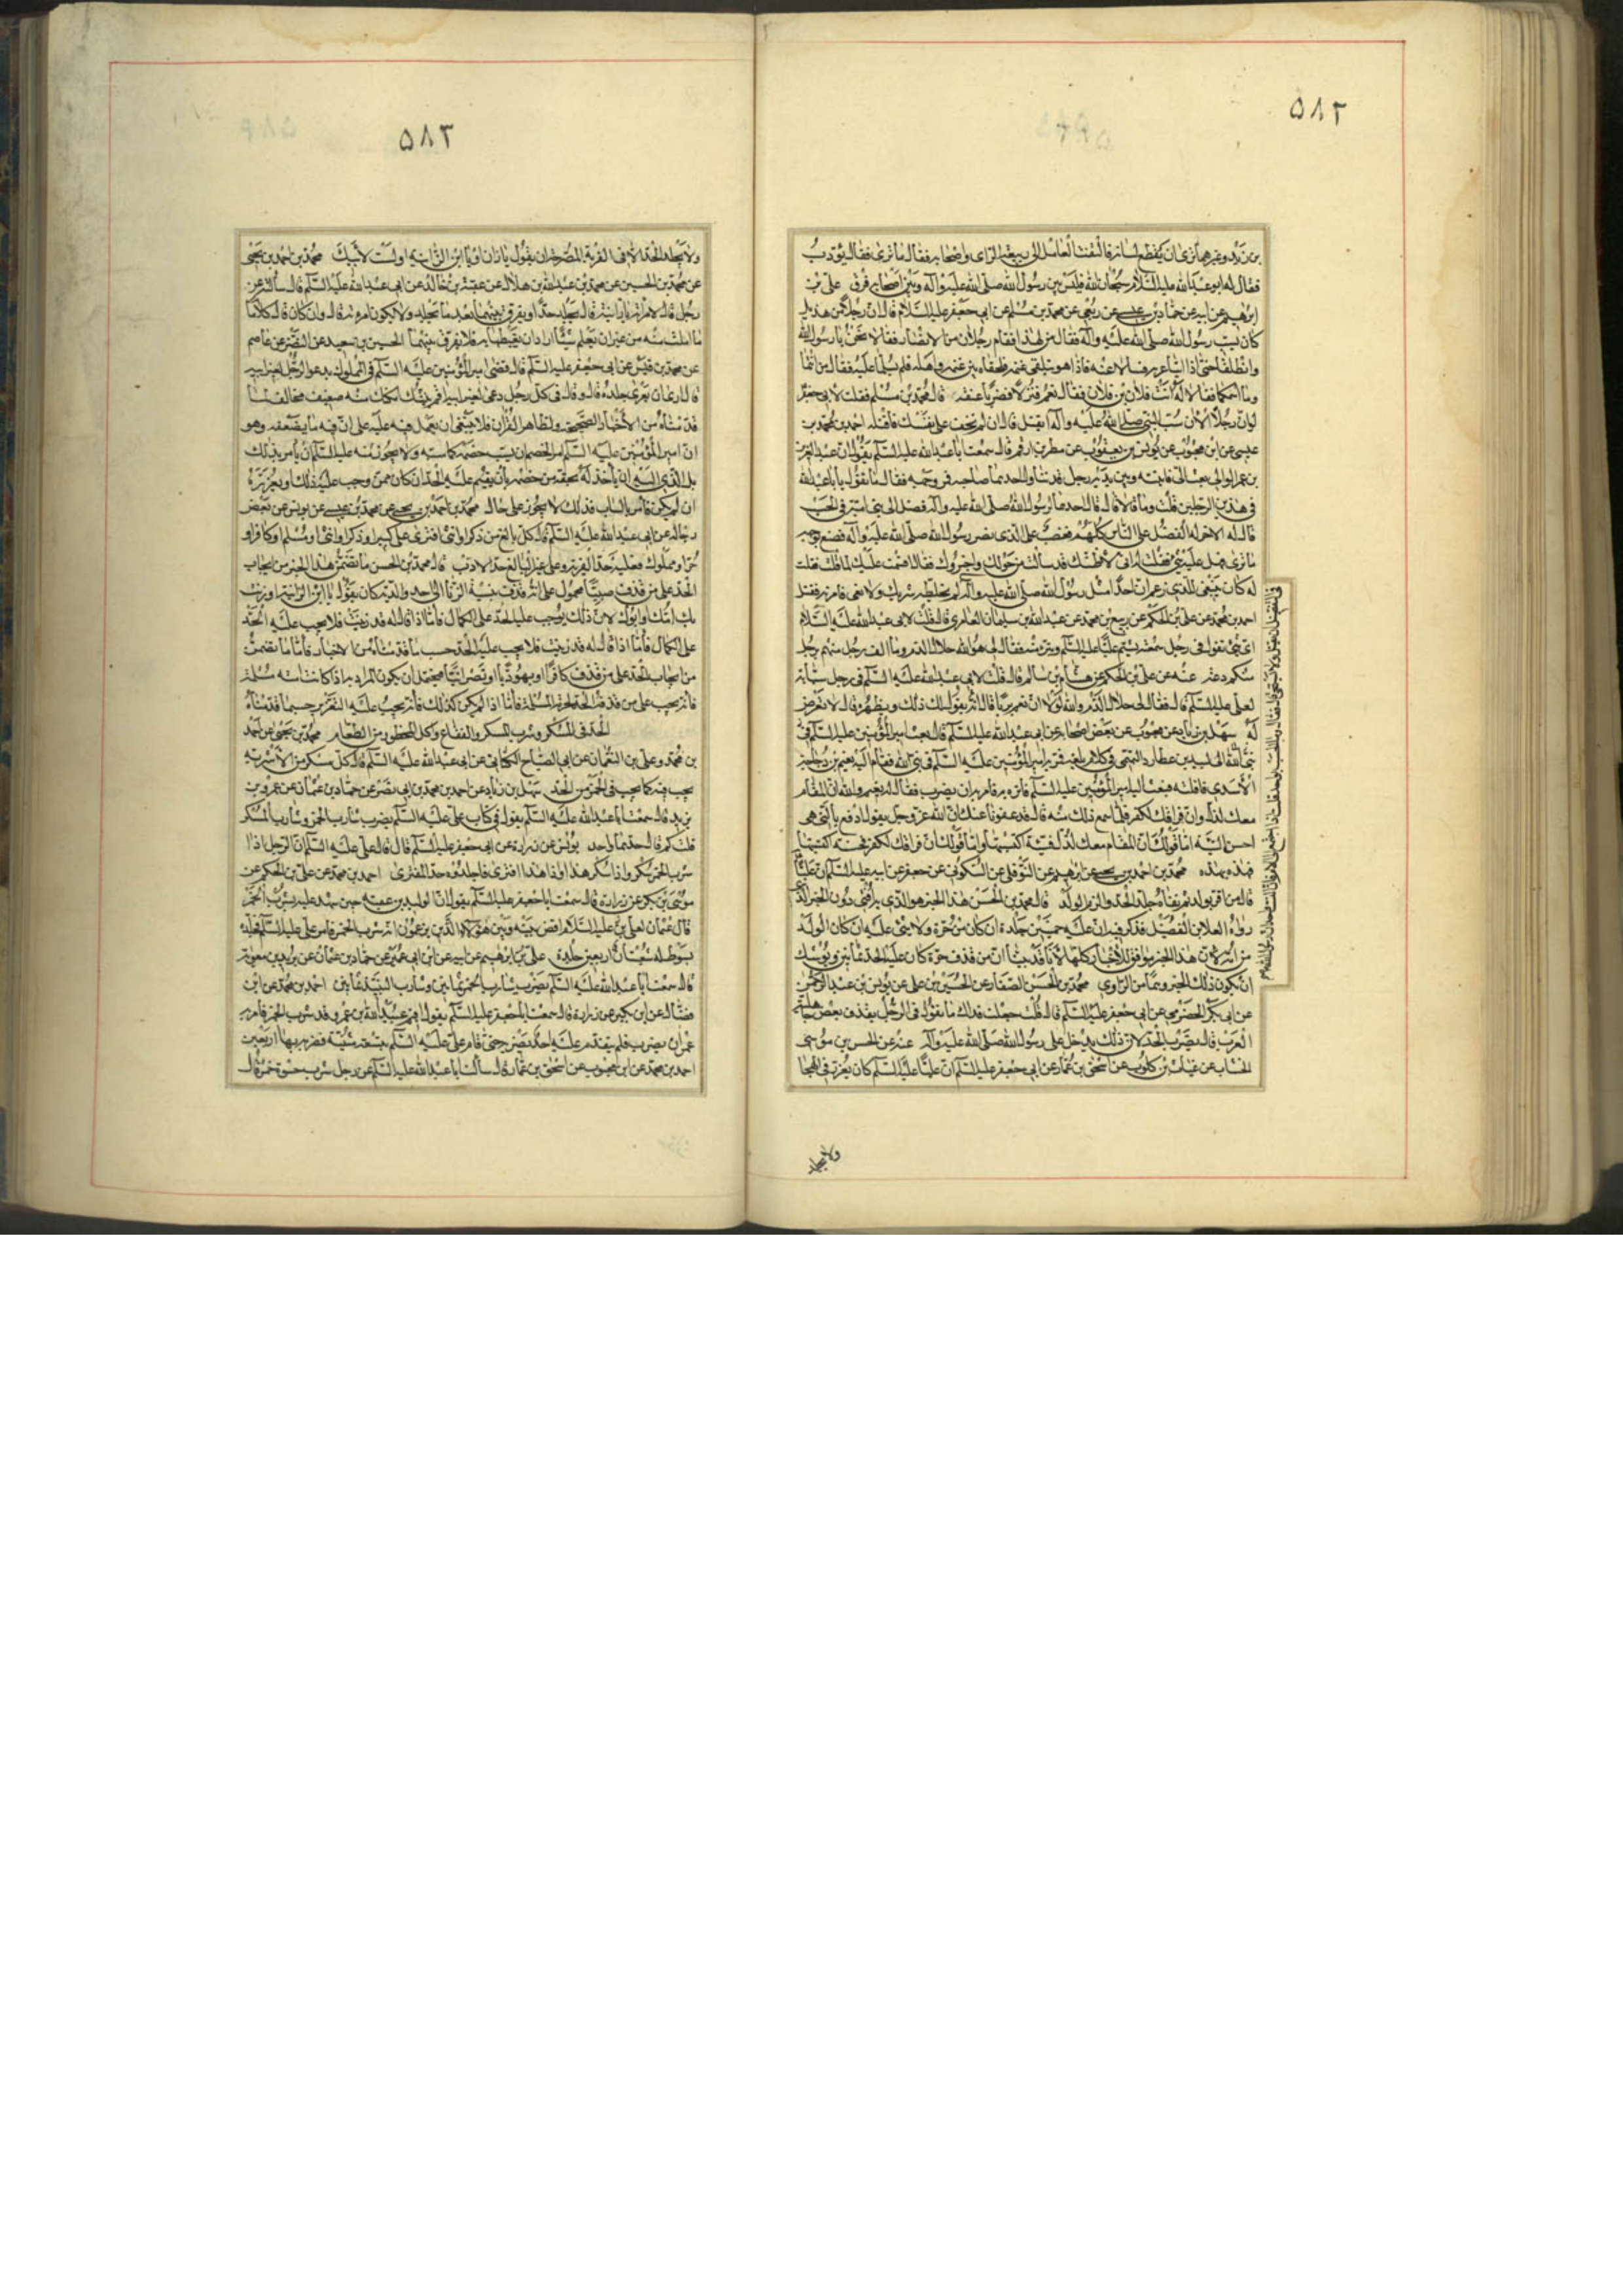 ٥٨٢
بن زيد وغيرهما نرى ان يقطع لسانه فالتفت العامل الى ربيعة الراى واصحابه فقال ما ترى فقال يؤدب
فقال له ابو عبد الله عليه السلام سبحان الله فليس بين رسول الله صلى الله عليه وآله وبين اصحابه فرق على بن
ابرهيم عن ابيه عن حماد بن عيسى عن ربعى عن محمد بن مسلم عن ابى جعفر عليه السلام قال ان رجلا من هذيل
كان يسب رسول الله صلى الله عليه وآله فقال من لهذا فقام رجلان من الانصار فقالا نحن يا رسول الله
وانطلقا حتى اتيا عربة فسالا عنه فاذا هو يتلقى غنمه فلحقاه بين غنمه واهله فلم يسلما عليه فقال من انتما
وما اسمكما فقالا له انت فلان بن فلان فقال نعم فنزلا فضربا عنقه قال محمد بن مسلم فقلت لابى جعفر
ارايت رجلا الان سب النبى صلى الله عليه وآله ايقتل قال ان لم تخف على نفسك فاقتله احمد بن محمد بن
عيسى عن ابن محبوب عن يونس بن يعقوب عن مطر بن ارقم قال سمعت ابا عبد الله عليه السلام يقول ان عبد العزيز
بن عمر الوالى بعث الى فاتيته وبين يديه رجلان قد تناول احدهما صاحبه فمرش وجهه فقال ما تقول يا ابا عبد الله
فى هذين الرجلين قلت وما قالا قال قال احدهما لرسول الله صلى الله عليه وآله فضل على بنى امية فى الحسب
قال له الاخر له الفضل على الناس كلهم وغضب الذى نصر رسول الله صلى الله عليه وآله فصنع بوجهه
ما ترى فهل عليه شىء فقلت له انى لاظنك قد سالت من حولك واخبروك فقال اقسمت عليك لما قلت فقلت
له كان ينبغى للذى زعم ان احدا مثل رسول الله صلى الله عليه وآله فى الفضل ان يقتل ولا يستحيى
احمد بن محمد عن على بن الحكم عن ربيع بن محمد عن عبد الله بن سليمان العامرى قال قلت لابى عبد الله عليه السلام
اى شىء تقول فى رجل سمعته يشتم عليا عليه السلام ويبرء منه فقال لى هو والله حلال الدم وما الف رجل منهم برجل
منكم دعه عنه عن على بن الحكم عن هشام بن سالم قال قلت لابى عبد الله عليه السلام فى رجل سبابة
لعلى عليه السلام قال فقال لى حلال الدم والله لولا ان تعم بريئا
له سهل بن زياد عن محبوب عن بعض اصحابه عن ابى عبد الله عليه السلام قال بعث امير المؤمنين عليه السلام
الى لبيد بن عطارد التميمى فى كلام بلغه فمر به امير المؤمنين عليه السلام فى بنى اسد فقام اليه نعيم بن دجاجة
الاسدى فافلته فبعث اليه امير المؤمنين عليه السلام فاتوه به فامر به ان يضرب فقال له نعيم والله ان المقام
معك لذل وان فراقك لكفر فلما سمع ذلك منه قال قد عفونا عنك ان الله عز وجل يقول ادفع بالتى هى
احسن السيئة اما قولك ان المقام معك لذل فسيئة اكتسبتها واما قولك ان فراقك لكفر فحسنة اكتسبتها
فهذه بهذه محمد بن احمد بن يحيى عن ابرهيم عن النوفلى عن السكونى عن جعفر عن ابيه عليه السلام ان عليا
قال من اقر بولد ثم نفاه جلد الحد والزم الولد قال محمد بن الحسن هذا الخبر هو الذى به افتى دون الخبر الذى
رواه العلا بن الفضيل فذكر فيه ان عليه خمسين جلدة ان كان من حرة ولا شىء عليه ان كان الولد
من امة لان هذا الخبر موافق للاخبار كلها لانا قد بينا ان من قذف حرة كان عليه الحد ثمانين ويوشك
ان يكون ذلك الخبر وهما من الراوى محمد بن الحسن الصفار عن الحسين بن على عن يونس بن عبد الرحمن
عن ابى بكر الحضرمى عن ابى جعفر عليه السلام قال قلت جعلت فداك ما تقول فى الرجل يقذف بعض جاهلية
العرب قال يضرب الحد لان ذلك يدخل على رسول الله صلى الله عليه وآله عنه عن الحسن بن موسى
الخشاب عن غياث بن كلوب عن اسحق بن عمار عن ابى جعفر عليه السلام ان عليا عليه السلام كان يعزر فى الهجا
ولا يجلد
٥٨٣
ولا يجلد الحد الا فى الفرية المصرحة ان يقول يا زان او يا ابن الزانية او لست لابيك محمد بن احمد بن يحيى
عن محمد بن الحسين عن محمد بن عبد الله بن هلال عن عقبة بن خالد عن ابى عبد الله عليه السلام قال سألته عن
رجل قال لامرأته يا زانية قال يجلد حدا ويفرق بينهما بعد ما يجلد ولا يكون امرءته قال وان كان قال كلاما
افلت منه من غير ان يعلم شيئا اراد ان يغيظها به فلا يفرق بينهما الحسين بن سعيد عن النضر عن عاصم
عن محمد بن قيس عن ابى جعفر عليه السلام قال قضى امير المؤمنين عليه السلام فى المملوك يدعو الرجل لغير ابيه
قال ارى ان يعرى جلده قال وقال فى كل رجل دعى لغير ابيه
قدمناه من الاخبار الصحيحة ولظاهر القران فلا ينبغى ان يعمل فيه عليه على ان فيه ما يضعفه وهو
ان امير المؤمنين عليه السلام امر الخصم ان يسب خصمه كما سبه ولا يجوز منه عليه السلام ان يأمر بذلك
بل الذى اليه ان يأخذ له بحقه من خصمه بأن يقيم عليه الحد ان كان ممن وجب عليه ذلك او يعزره
ان لم يكن فامر بالسباب فذلك لا يجوز على حال محمد بن احمد بن يحيى عن محمد بن عيسى عن يونس عن بعض
رجاله عن ابى عبد الله عليه السلام قال كل بالغ من ذكر او انثى افترى على كبير او ذكر او انثى او مسلم او كافر او
حر او مملوك فعليه حد الفرية وعلى غير البالغ حد الادب قال محمد بن الحسن ما تضمن هذا الخبر من ايجاب
الحد على من قذف صبيا محمول على انه قذفه بنسبة الزنا الى احد والديه كان يقول يا ابن الزانية او زنت
بك امك او ابوك لان ذلك يوجب عليه الحد على الكمال فامّا اذا قال له قد زنيت فلا يجب عليه الحد
على الكمال فأما اذا قال له قد زنيت فلا يجب عليه الحد حسب ما قدمناه من الاخبار فأما ما تضمن
من ايجاب الحد على من قذف كافرا او يهوديا او نصرانيا فيحتمل ان يكون المراد به اذا كانت امه مسلمة
فانه يجب على من قذفه الحد لحرمة المسلمة فأما اذا لم يكن كذلك فأنه يجب عليه التعزير حسبما قدمناه
الحد فى المسكر وشرب المسكر والفقاع وكل المحظور من الطعام محمد بن يحيى عن احمد
بن محمد وعلى بن النعمان عن ابى الصباح الكنانى عن ابى عبد الله عليه السلام قال كل مسكر من الاشربة
يجب فيه كما يجب فى الخمر من الحد سهل بن زياد عن احمد بن محمد بن ابى نصر عن حماد بن عثمان عن عمرو بن
يزيد قال سمعت ابا عبد الله عليه السلام يقول فى كتاب على عليه السلام يضرب شارب الخمر وشارب المسكر
قلت كم قال حدهما واحد يونس عن زرارة عن ابى جعفر عليه السلام قال قال على عليه السلام ان الرجل اذا
شرب الخمر سكر واذا سكر هذا واذا هذا افترى فاجلدوه حد المفترى احمد بن محمد عن على بن الحكم عن
موسى بن بكر عن زرارة قال سمعت ابا جعفر عليه السلام يقول ان الوليد بن عقبة حين شهد عليه بشرب الخمر
قال عثمان لعلى عليه السلام اقض بينه وبين هؤلاء الذين يزعمون انه شرب الخمر فامر على عليه السلام فجلد
بسوط له شعبتان اربعين جلدة على بن ابرهيم عن ابيه عن ابن ابى عمير عن حماد بن عثمان عن بريد بن معوية
قال سمعت ابا عبد الله عليه السلام يضرب شارب الخمر ثمانين وشارب النبيذ ثمانين احمد بن محمد عن ابن
فضال عن ابن بكير عن زرارة قال سمعت ابا جعفر عليه السلام يقول اقيم عبيد الله بن عمر وقد شرب الخمر فامر به
عمر ان يضرب فلم يتقدم عليه احد يضربه حتى قام على عليه السلام بنسعة مثنية فضربه بها اربعين
احمد بن محمد عن ابن محبوب عن اسحق بن عمار قال سألت ابا عبد الله عليه السلام عن رجل شرب حسوة خمر قال